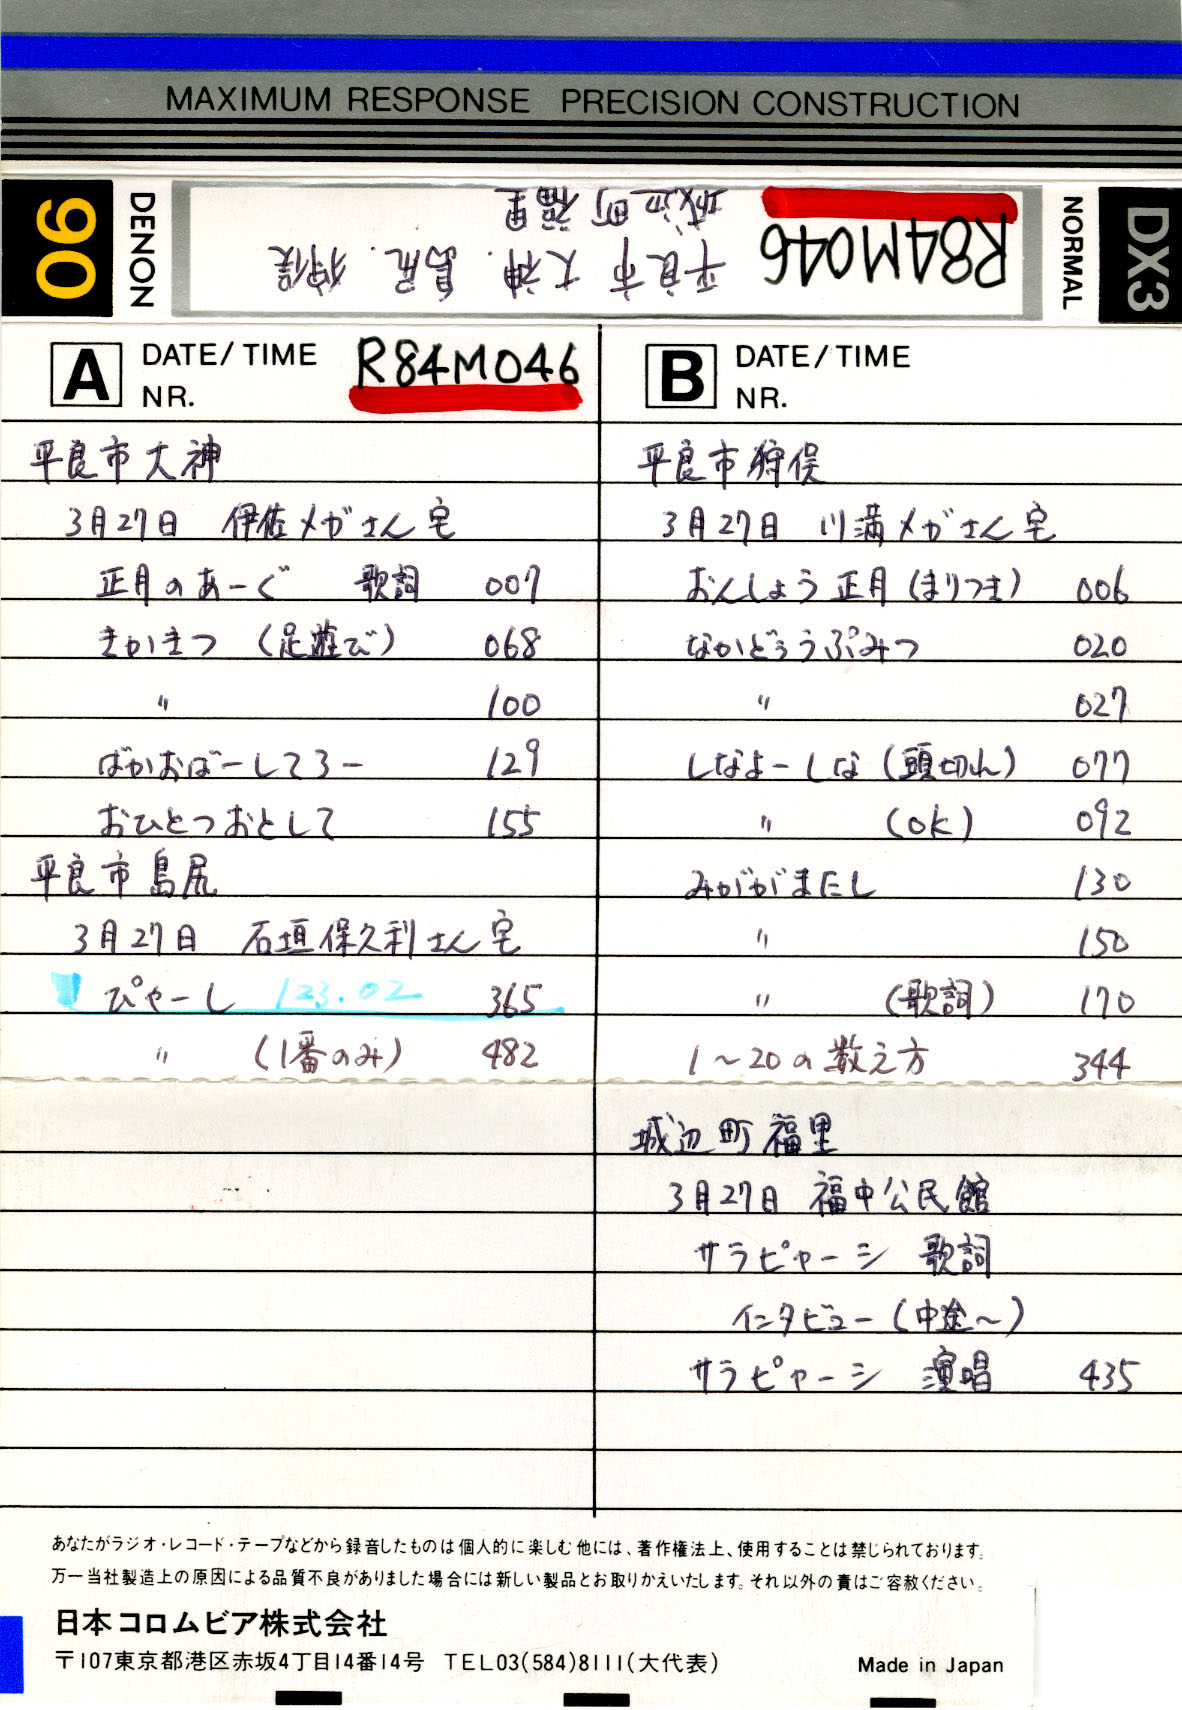 MAXIMUM RESPONSE PRECISION CONSTRUCTION
90
DENON
R84M046
平良市 大神. 島尻. 狩俣
城辺町 福里
NORMAL
DX3
A DATE/TIME
NR.
R84M046
平良市 大神
3月27日 伊佐メガさん宅
正月のあーぐ 歌詞 007
きかきつ (足遊び) 068
〃 100
ばかおばーしてろー 129
おひとつおとして 155
平良市 島尻
3月27日 石垣保久利さん宅
ぴゃーし 123.02 365
〃 (1番のみ) 482
B DATE/TIME
NR.
平良市 狩俣
3月27日 川満メガさん宅
おんしょう正月 (まりつき) 006
なかどぅうぷみつ 020
〃 027
しなよーしな (頭切れ) 077
〃 (OK) 092
みががまにし 130
〃 150
〃 (歌詞) 170
1〜20の数え方 344
城辺町 福里
3月27日 福中公民館
サラピャーシ 歌詞
インタビュー (中途〜)
サラピャーシ 演唱 435
あなたがラジオ・レコード・テープなどから録音したものは個人的に楽しむ他には、著作権法上、使用することは禁じられております。
万一当社製造上の原因による品質不良がありました場合には新しい製品とお取りかえいたします。それ以外の責はご容赦ください。
日本コロムビア株式会社
〒107東京都港区赤坂4丁目14番14号 TEL03(584)8111(大代表)
Made in Japan